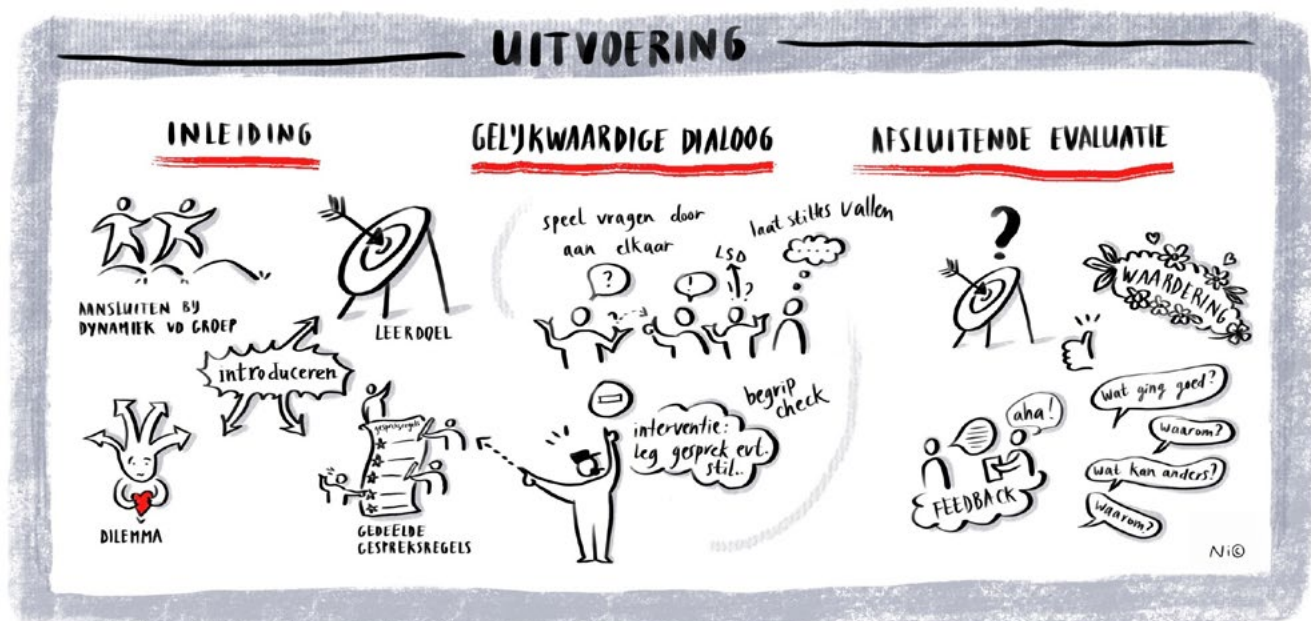 UITVOERING
INLEIDING
AANSLUITEN BIJ
DYNAMIEK VD GROEP
LEERDOEL
introduceren
DILEMMA
gespreksregels
GEDEELDE
GESPREKSREGELS
GELIJKWAARDIGE DIALOOG
speel vragen door
aan elkaar
laat stiltes vallen
?
!
LSD
?
interventie:
leg gesprek evt.
stil..
begrip
check
AFSLUITENDE EVALUATIE
?
WAARDERING
aha!
FEEDBACK
wat ging goed?
waarom?
wat kan anders?
waarom?
Ni©